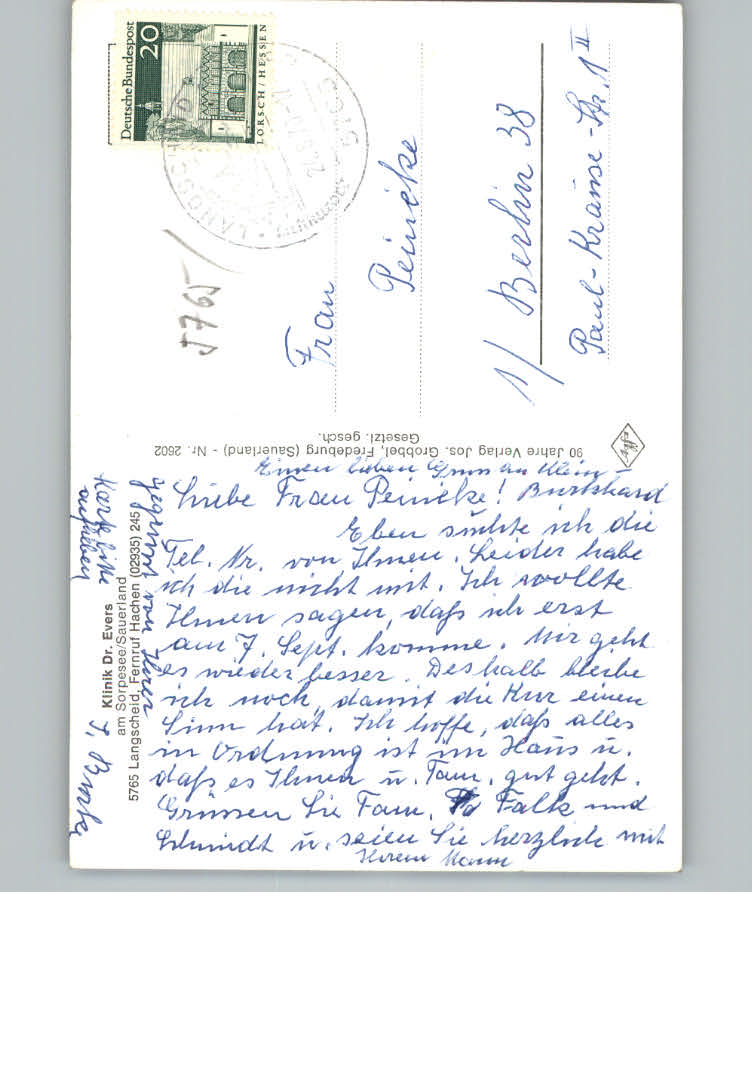 Deutsche Bundespost
20
LORSCH / HESSEN
LANGSCHEID
5765
Frau
Peinecke
1/ Berlin 38
Paul-Krause-Str. 1 II
90 Jahre Verlag Jos. Grobbel, Fredeburg (Sauerland) - Nr. 2602
Gesetzl. gesch.
Klinik Dr. Evers
am Sorpesee/Sauerland
5765 Langscheid, Fernruf Hachen (02935) 245
Einen lieben Gruss an Klein-
Burkhard
Liebe Frau Peinecke!
Eben suchte ich die
Tel. Nr. von Ihnen. Leider habe
ich die nicht mit. Ich wollte
Ihnen sagen, daß ich erst
am 7. Sept. komme. Mir geht
es wieder besser. Deshalb bleibe
ich noch, damit die Kur einen
Sinn hat. Ich hoffe, daß alles
in Ordnung ist im Haus u.
daß es Ihnen u. Fam. gut geht.
Grüssen Sie Fam. Falk und
Schmidt u. seien Sie herzlich mit
Ihrem Mann
gegrüsst von Ihrer
Karte bitte
aufheben